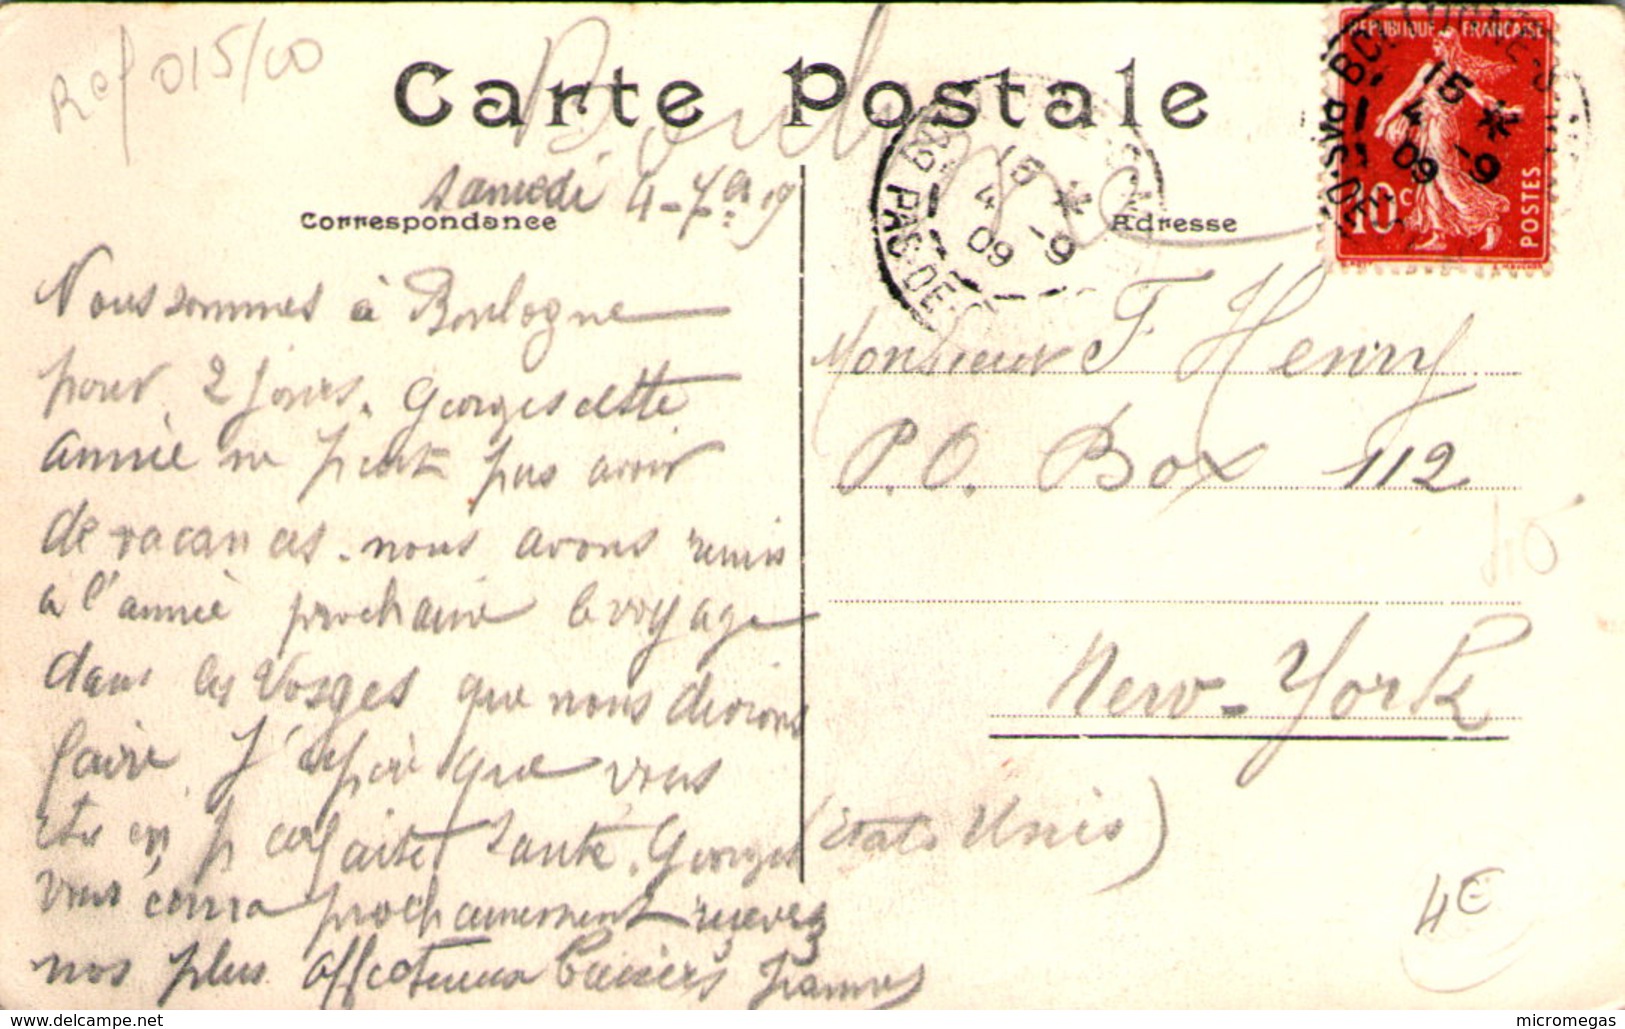 Ref 015/00
Carte Postale
Samedi 4-7bre 09
Correspondance
Adresse
REPUBLIQUE FRANÇAISE
10c
POSTES
15 *
4 -9
09
PAS-DE-
15 *
4 -9
09
PAS-DE-
Nous sommes à Boulogne
pour 2 jours. Georges cette
année ne peut pas avoir
de vacances. nous avons remis
à l'année prochaine le voyage
dans les Vosges que nous devions
faire. J'espère que vous
êtes en parfaite santé. Georges
vous écrira prochainement recevez
nos plus affectueux baisers
Monsieur F Henry
P.O. Box 112
New-York
(Etats Unis)
4€
micromegas
delcampe.net